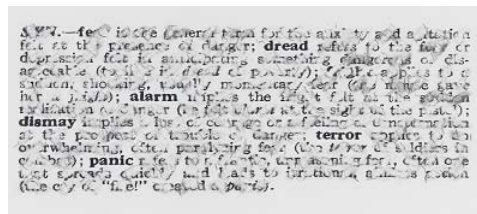 SYN.—fear is the general term for the anxiety and agitation
felt at the presence of danger; dread refers to the fear or
depression felt in anticipating something dangerous or dis-
agreeable (to live in dread of poverty); fright applies to a
sudden, shocking, usually momentary fear (the mouse gave
her a fright); alarm implies the fright felt at the sudden
realization of danger (he felt alarm at the sight of the pistol);
dismay implies a loss of courage or a feeling of consternation
at the prospect of trouble or danger; terror applies to an
overwhelming, often paralyzing fear (the terror of soldiers in
combat); panic refers to a frantic, unreasoning fear, often one
that spreads quickly and leads to irrational, aimless action
(the cry of "fire!" created a panic).